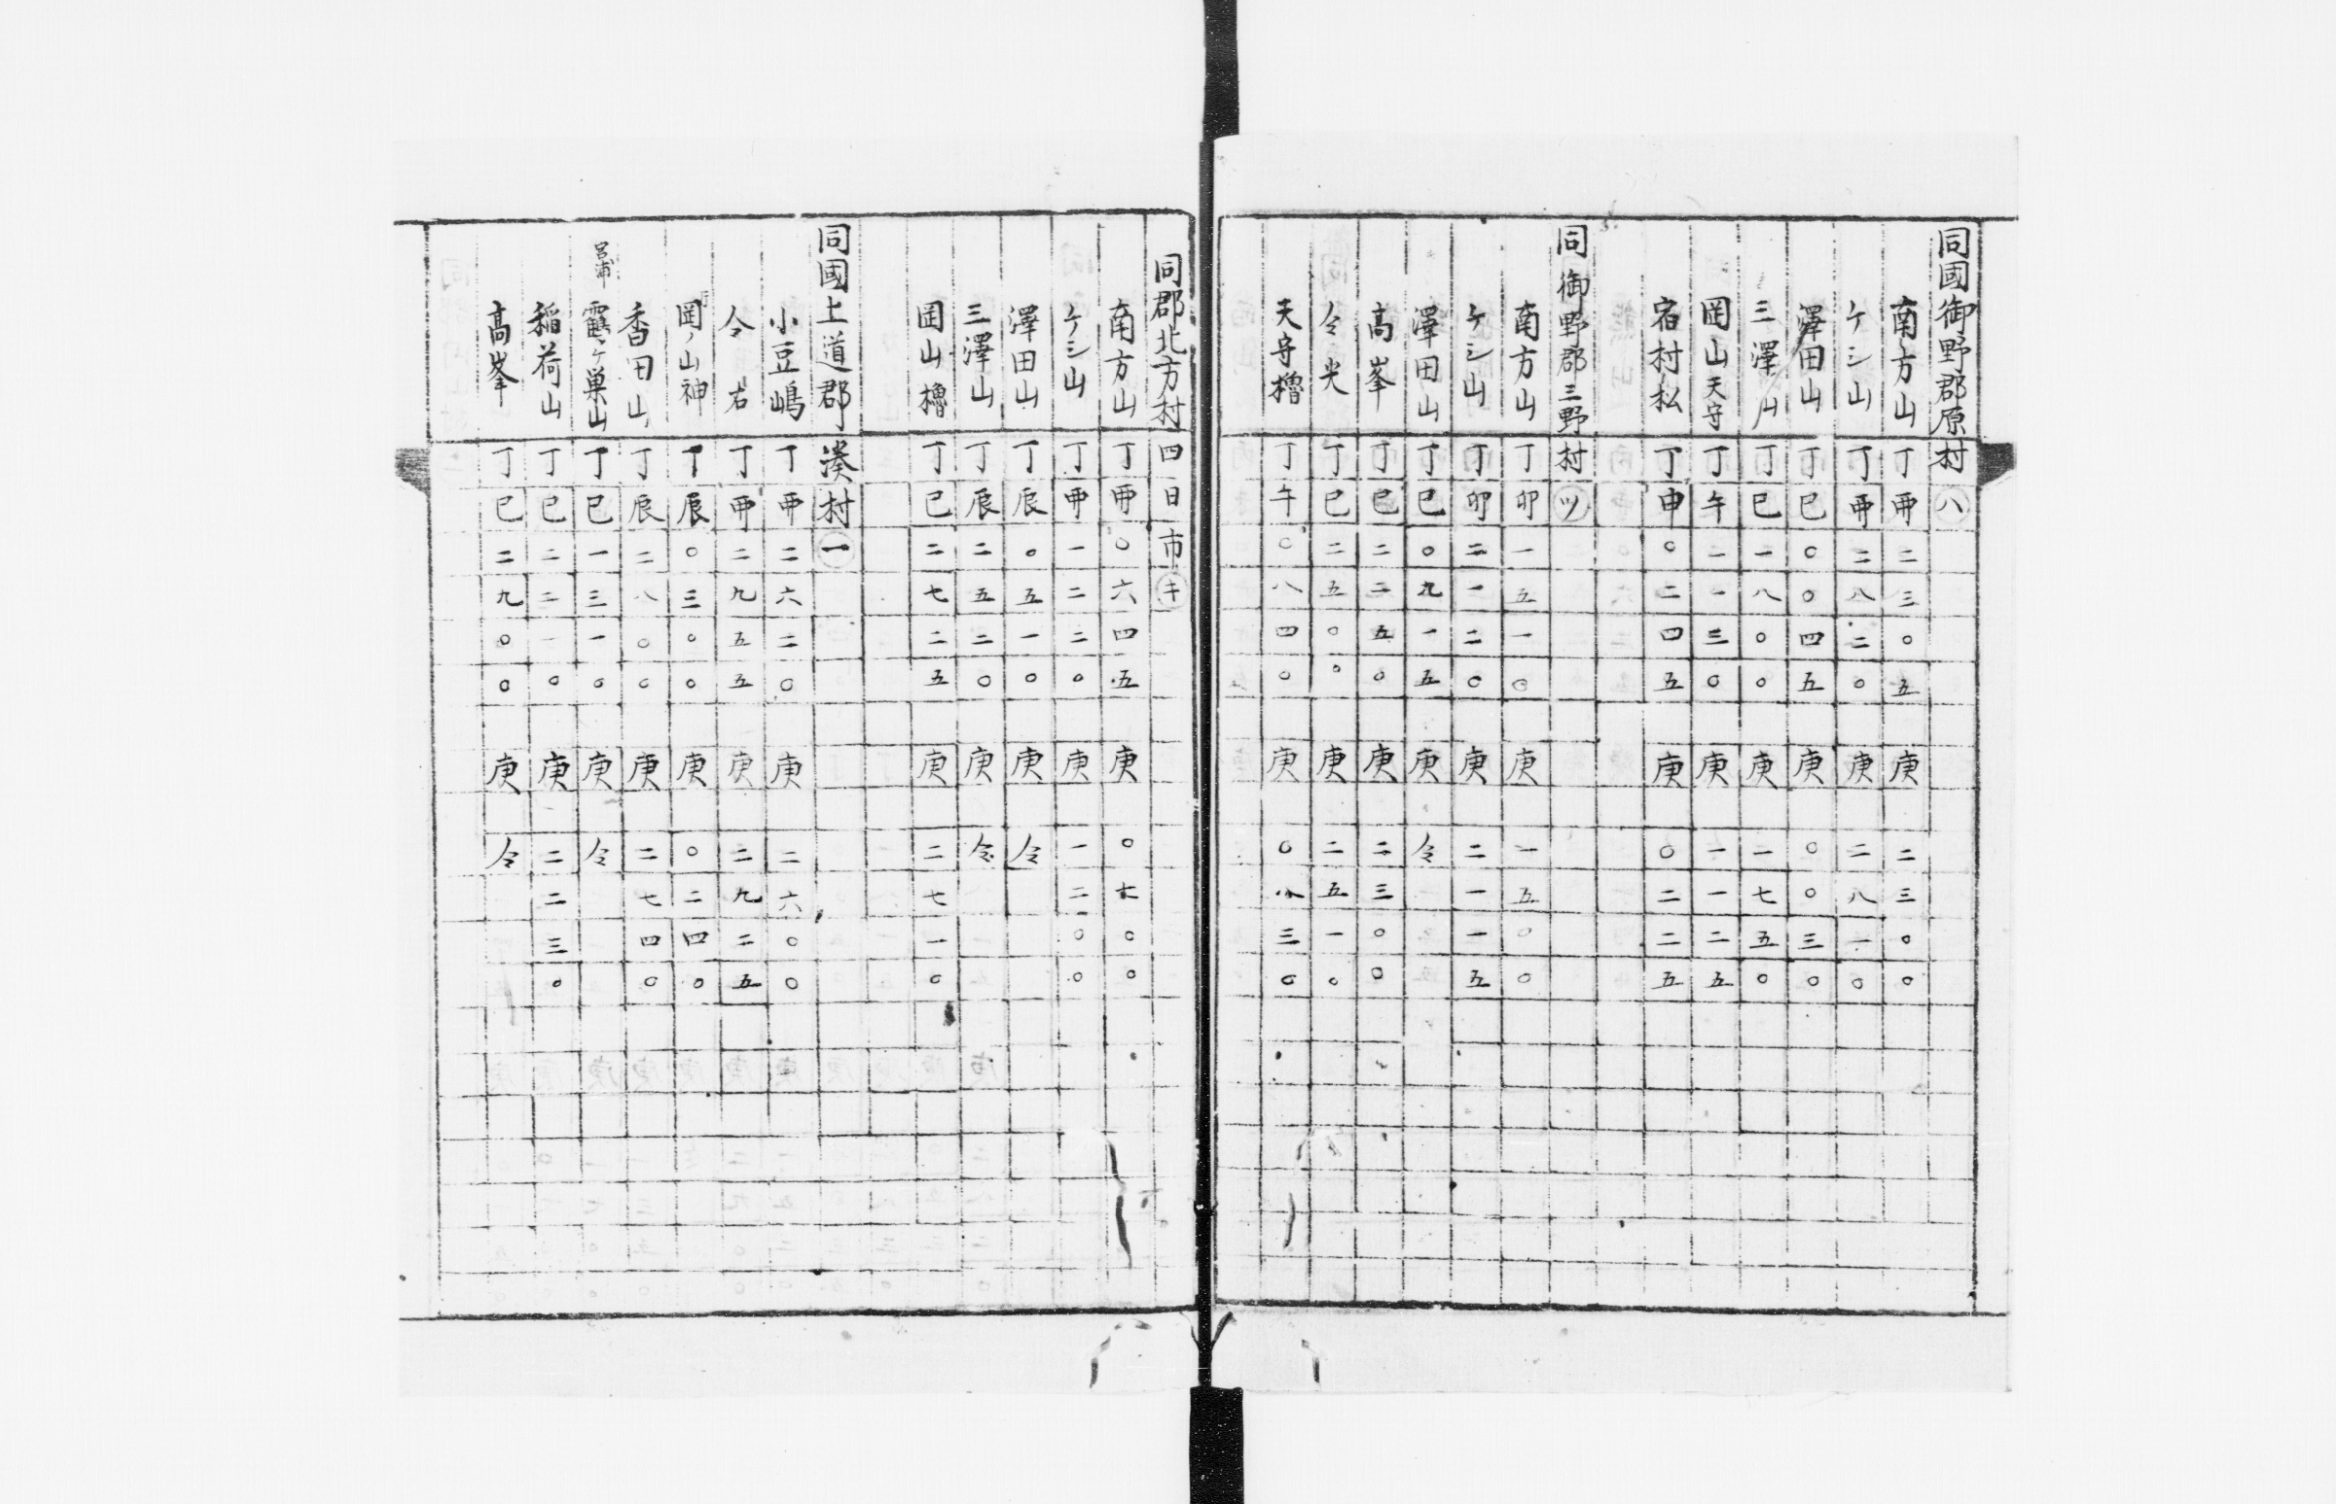 同國御野郡原村 ㋩
南方山 丁酉 二三〇五 庚 二三〇〇
ケシ山 丁酉 二八二〇 庚 二八一〇
澤田山 丁巳 〇〇四五 庚 〇〇三〇
三澤山 丁巳 一八〇〇 庚 一七五〇
岡山天守 丁午 一一三〇 庚 一一二五
宿村松 丁申 〇二四五 庚 〇二二五
同御野郡三野村 ㋡
南方山 丁卯 一五一〇 庚 一五〇〇
ケシ山 丁卯 二一二〇 庚 二一一五
澤田山 丁巳 〇九一五 庚 仝
高峯 丁巳 二二五〇 庚 二三〇〇
仝尖 丁巳 二五〇〇 庚 二五一〇
天守櫓 丁午 〇八四〇 庚 〇八三〇
同郡北方村四日市 ㋖
南方山 丁酉 〇六四五 庚 〇七〇〇
ケシ山 丁酉 一二二〇 庚 一二〇〇
澤田山 丁辰 〇五一〇 庚 仝
三澤山 丁辰 二五二〇 庚 仝
岡山櫓 丁巳 二七二五 庚 二七一〇
同國上道郡湊村 ㊀
小豆嶋 丁酉 二六二〇 庚 二六〇〇
仝右 丁酉 二九五五 庚 二九二五
岡ノ山神 丁辰 〇三〇〇 庚 〇二四〇
香田山 丁辰 二八〇〇 庚 二七四〇
宮浦 靏ヶ巣山 丁巳 一三一〇 庚 仝
稲荷山 丁巳 二二一〇 庚 二二三〇
高峯 丁巳 二九〇〇 庚 仝